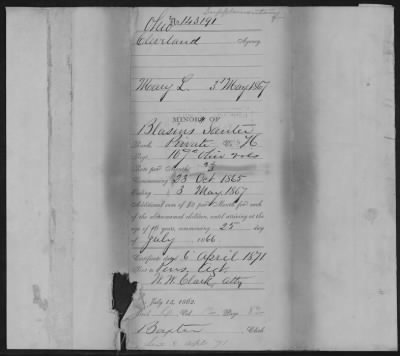 Supplementary
Ohio No 143191
Cleveland Agency
Mary L. 3d May 1867
MINOR of
Blasius Sauter
Rank, Private Co. K
Regt. 107" Ohio Vols
Rate per Month,
Commencing 23 Oct 1865
Ending 3 May 1867
Additional sum of $2 per Month for each
of the abovenamed children, until arriving at the
age of 16 years, commencing 25th day
of July 1866.
Certificate dated 6 April 1871
W. W. Clark, atty
July 14, 1862.
Baxter Clerk